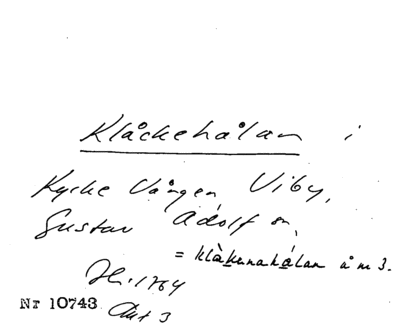 Klåckehålan i
Kyrke Vången Viby,
Gustav Adolf sn.
= klåkenahålan å m 3.
Jh. 1764
Akt 3
Nr 10743